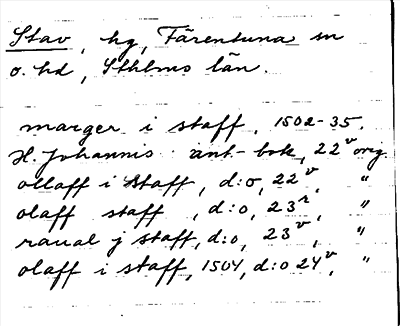 Stav, hg, Färentuna sn
o. hd, Sthlms län.
marger i staff, 1502-35.
H. Johannis ant-bok, 22v orig
ollaff i staff, d:o, 22v, "
olaff staff, d:o, 23r, "
raual j staff, d:o, 23v, "
olaff i staff, 1504, d:o 24v, "